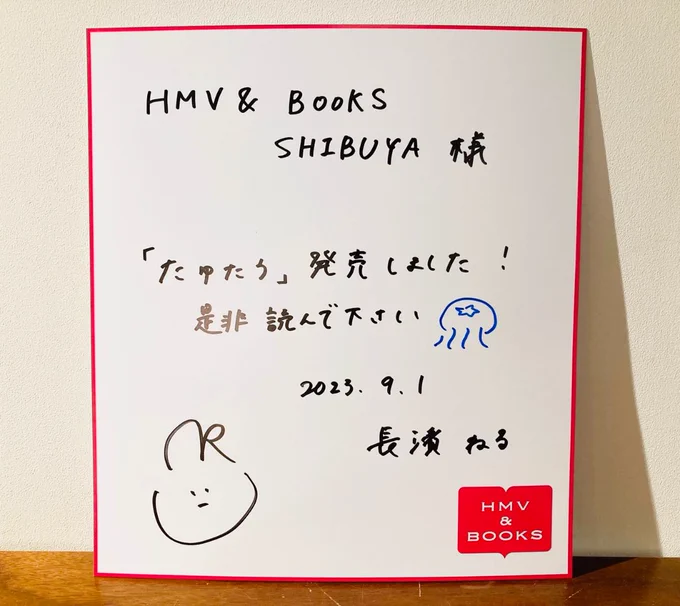 HMV & BOOKS
SHIBUYA 様
「たゆたう」発売しました！
是非 読んで下さい
2023. 9. 1
長濱 ねる
HMV
&
BOOKS